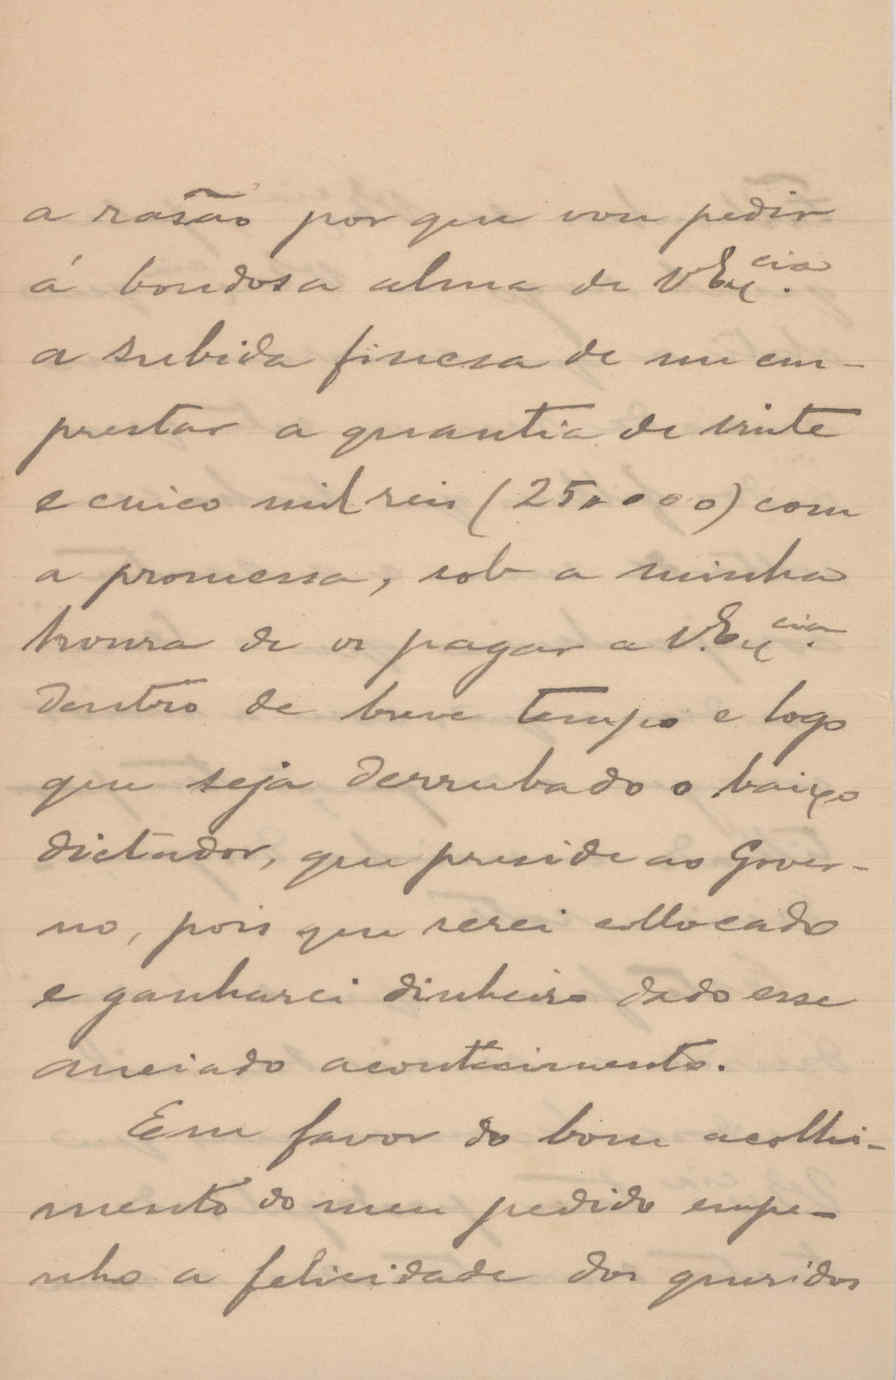 a rasão por que vou pedir
á bondosa alma de V Ex.cia
a subida finesa de me em-
prestar a quantia de vinte
e cinco mil reis (25,000) com
a promessa, sob a minha
honra de os pagar a V. Ex.cia
dentro de breve tempo e logo
que seja derrubado o baixo
dictador, que preside ao Gover-
no, pois que serei collocado
e ganharei dinheiro dado esse
anciado acontecimento.
Em favor do bom acolhi-
mento do meu pedido empe-
nho a felicidade dos queridos